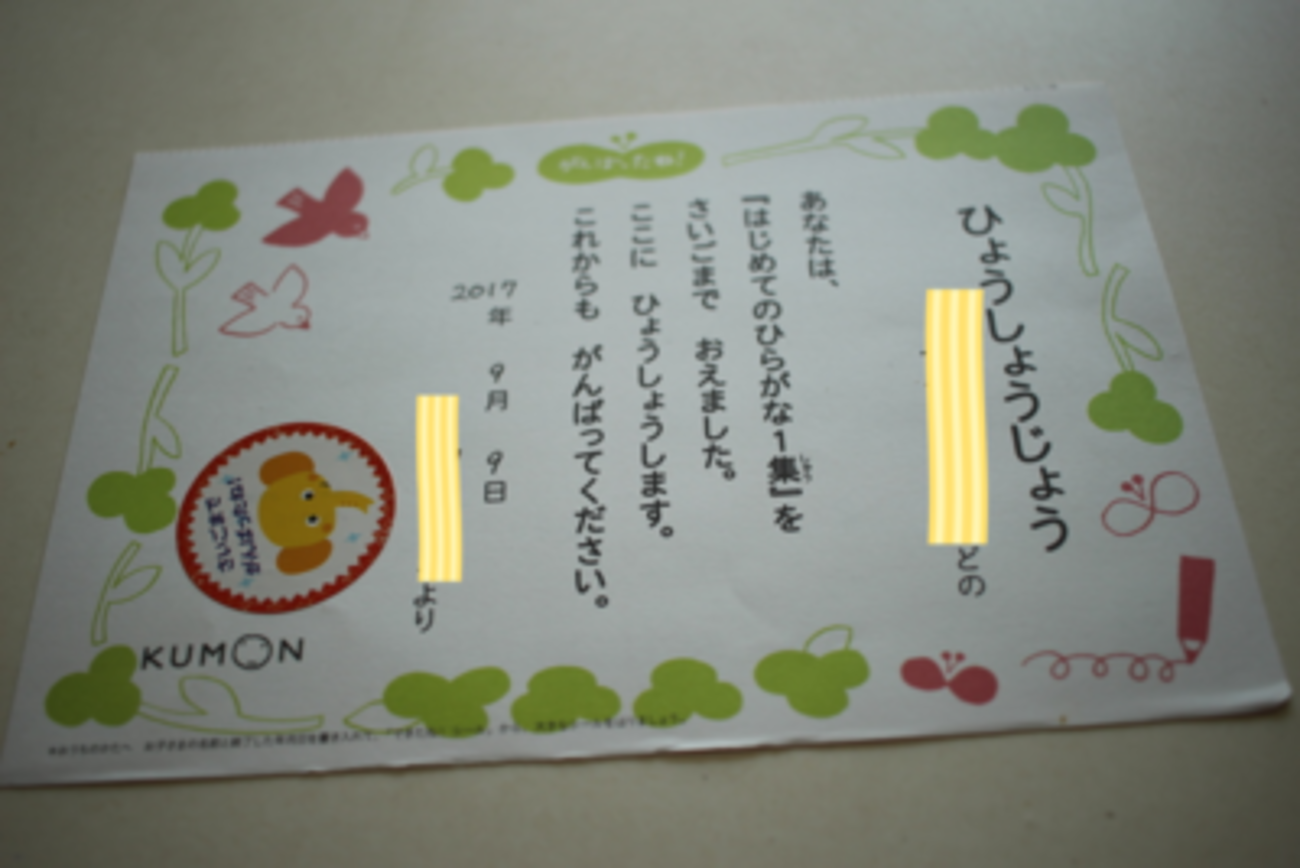 がんばったね!
ひょうしょうじょう
どの
あなたは、
『はじめてのひらがな1集』を
しゅう
さいごまで おえました。
ここに ひょうしょうします。
これからも がんばってください。
2017年 9月 9日
より
KUMON